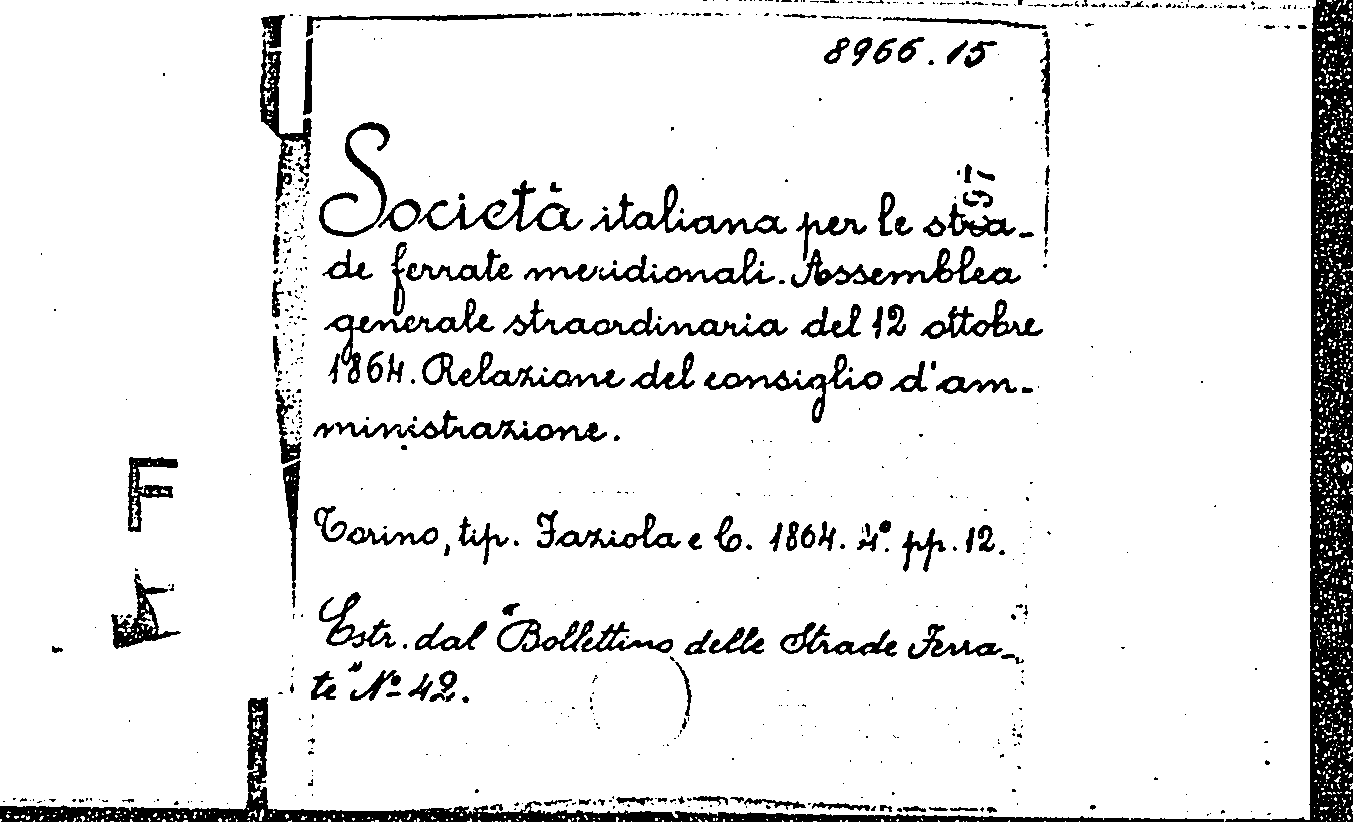 8966.15
97
Società italiana per le stra-
de ferrate meridionali. Assemblea
generale straordinaria del 12 ottobre
1864. Relazione del consiglio d'am-
ministrazione.
Torino, tip. Faziola e C. 1864. 4º. pp. 12.
Estr. dal "Bollettino delle Strade Ferra-
te" Nº 42.
F